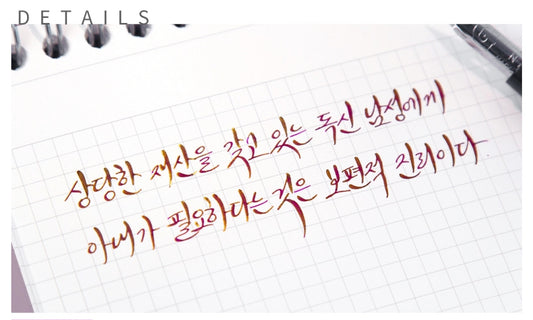 DETAILS
상당한 재산을 갖고 있는 독신 남성에게
아내가 필요하다는 것은 보편적 진리이다